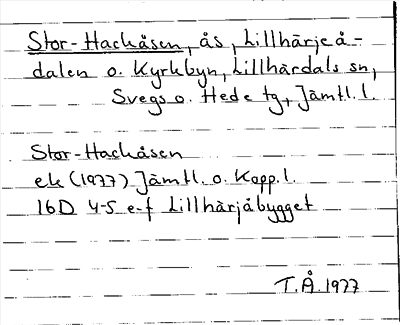 Stor-Hackåsen, ås, Lillhärjeå-
dalen o. Kyrkbyn, Lillhärdals sn,
Svegs o. Hede tg, Jämtl. l.
Stor-Hackåsen
ek (1977) Jämtl. o. Kopp. l.
16D 4-5 e-f Lillhärjåbygget
T.Å. 1977